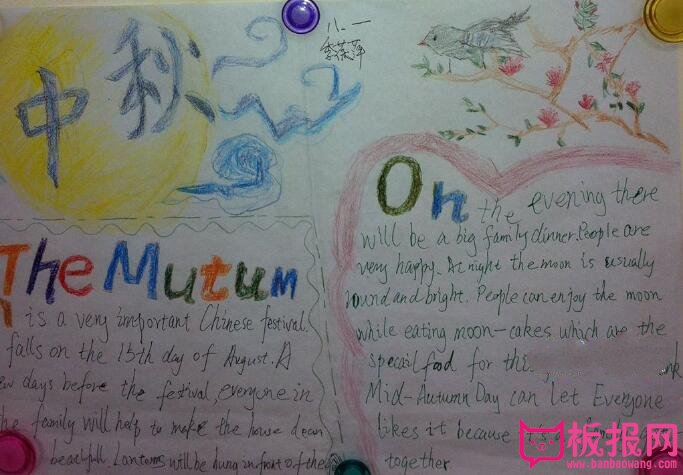 中秋
八.一
The Mutum
is a very important Chinese festival.
falls on the 15th day of August. A
few days before the festival, everyone in
the family will help to make the house clean
beautifull. Lanterns will be hung infront of the
On the evening there
will be a big family dinner. People are
very happy. At night the moon is usually
round and bright. People can enjoy the moon
while eating moon-cakes which are the
specail food for this
Mid-Autumn Day can let Everyone
likes it because
together
板报网
www.banbaowang.com